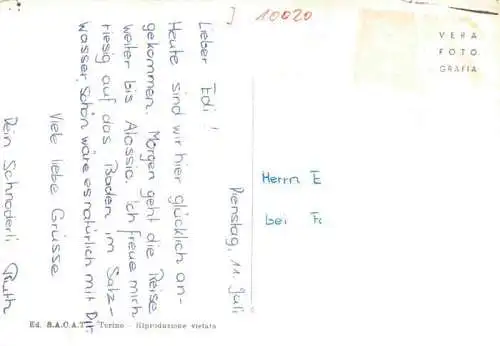 ] 10020
VERA
FOTO
GRAFIA
Dienstag, 11. Juli
Lieber Edi!
Heute sind wir hier glücklich an-
gekommen. Morgen geht die Reise
weiter bis Alassia. Ich freue mich
riesig auf das Baden im Salz-
wasser. Schön wäre es natürlich mit Dir.
Viele liebe Grüsse
Dein Schnoderli Ruth
Herrn E
bei F
Ed. S.A.C.A.T. Torino - Riproduzione vietata